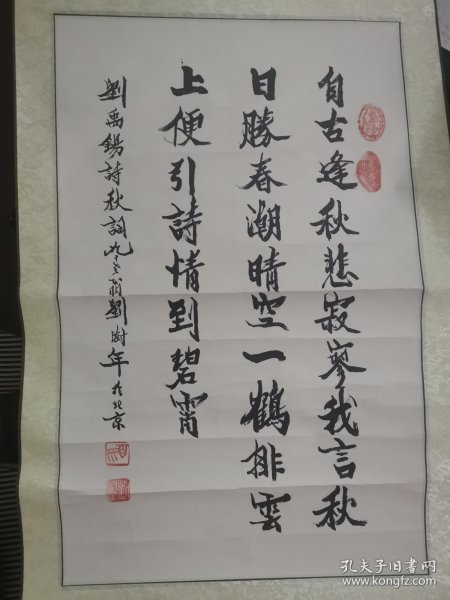 自古逢秋悲寂寥我言秋
日勝春潮晴空一鶴排雲
上便引詩情到碧霄
劉禹錫詩秋詞九五翁劉澍年於北京
孔夫子旧书网
www.kongfz.com